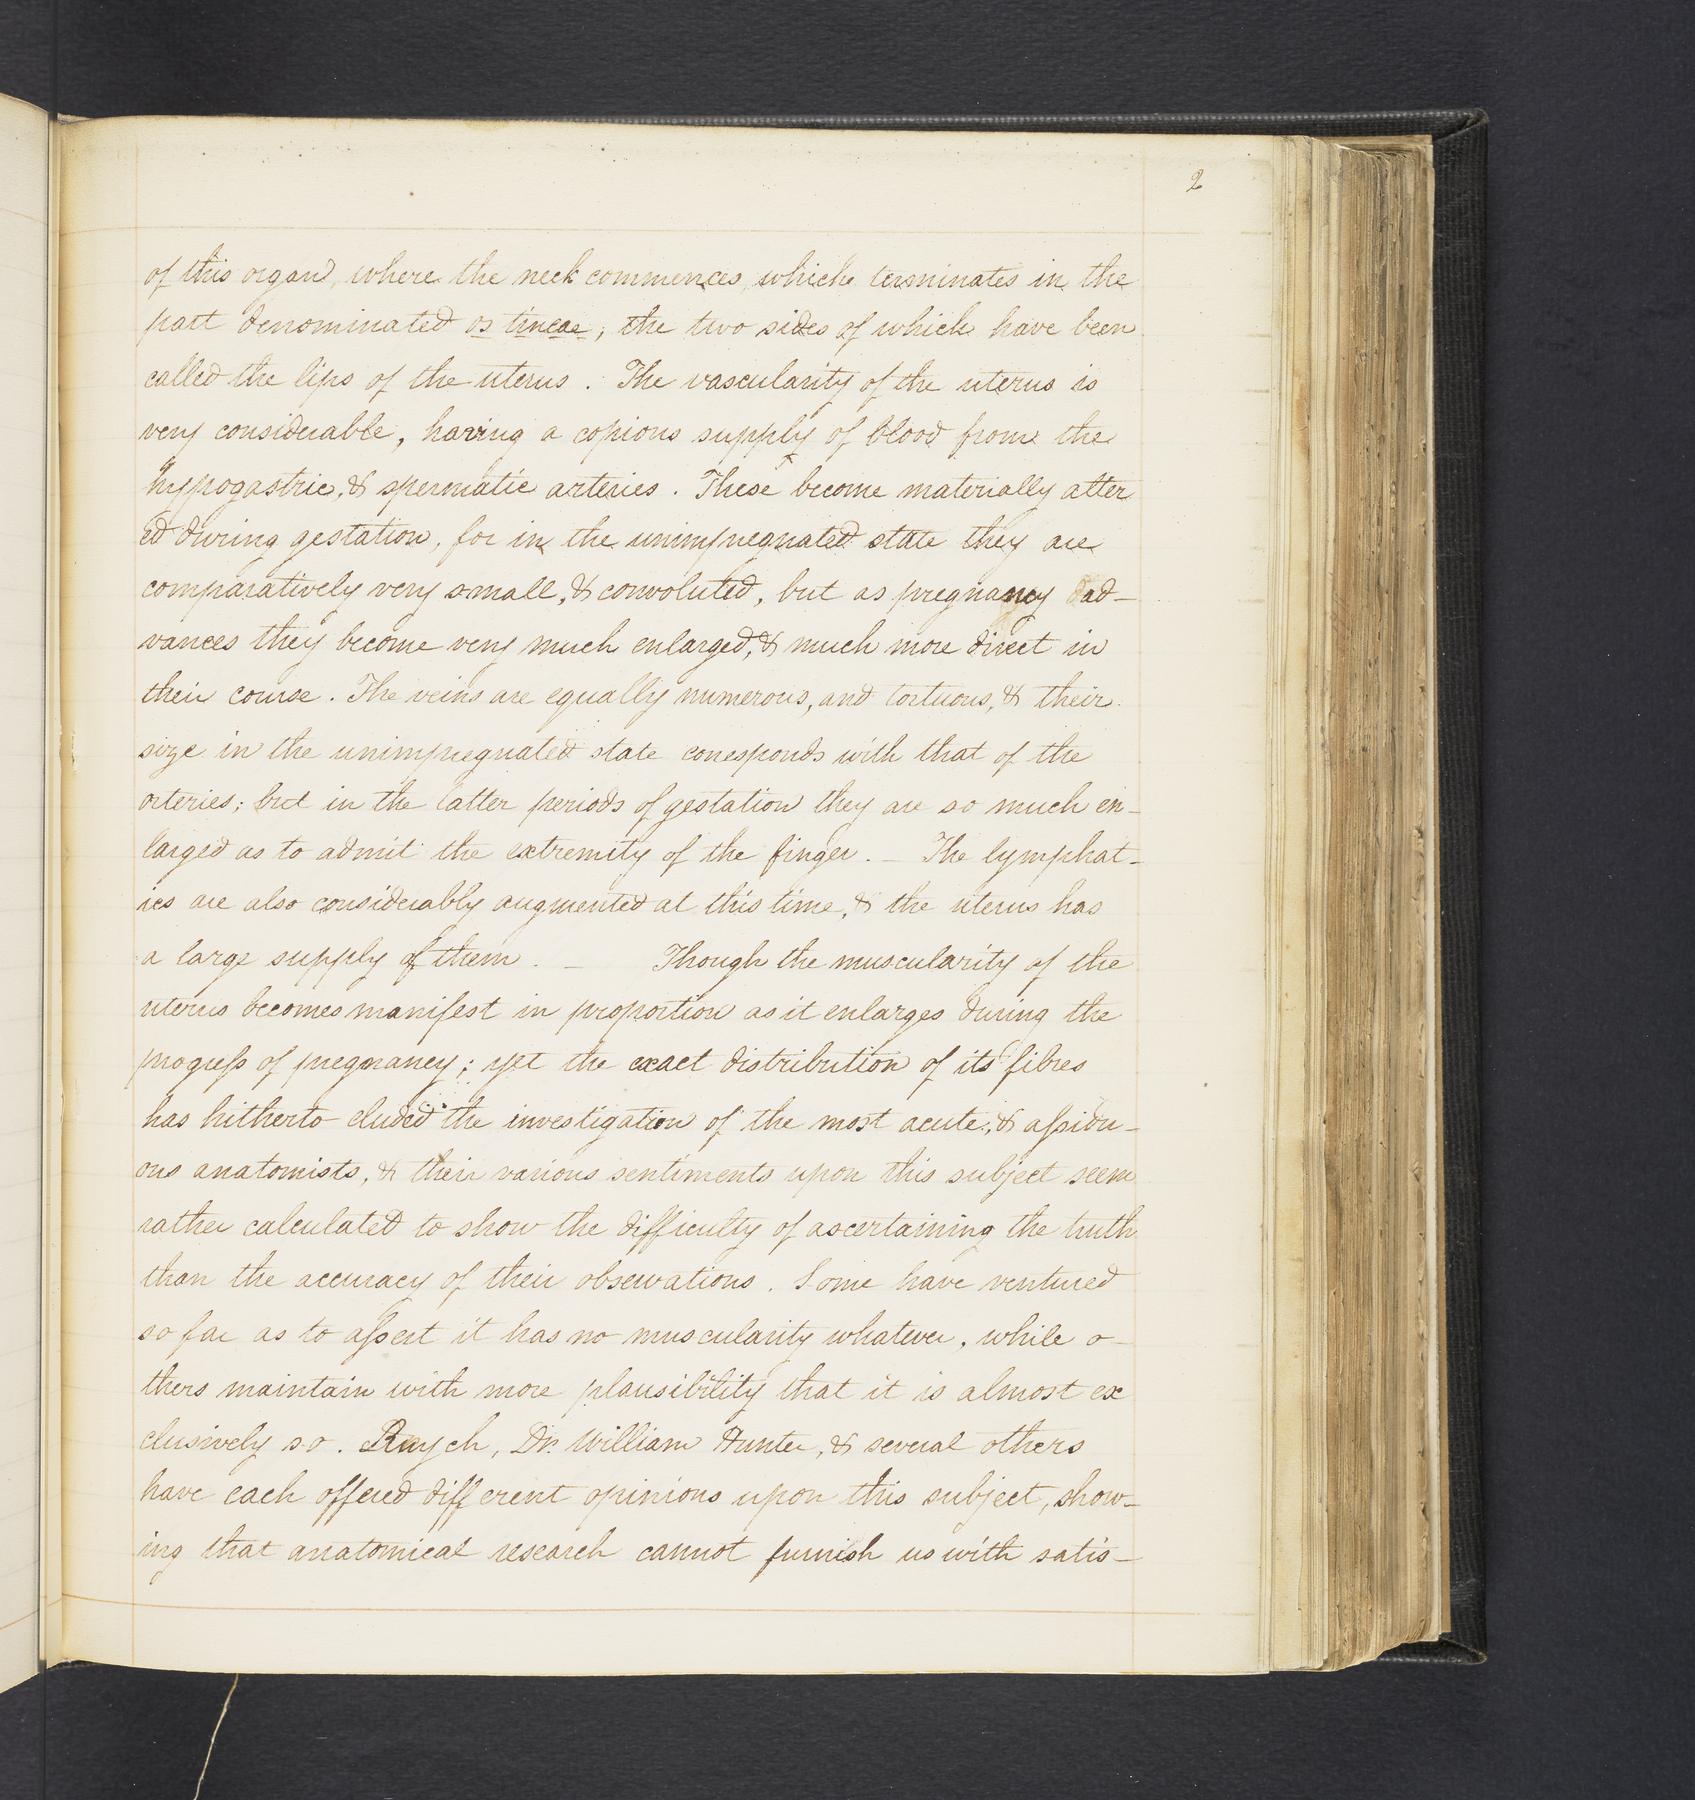 2
of this organ, where the neck commences, which terminates in the
part denominated os tincae, the two sides of which have been
called the lips of the uterus. The vascularity of the uterus is
very considerable, having a copious supply of blood from the
hypogastric, & spermatic arteries. These become materially alter
ed during gestation, for in the unimpregnated state they are
comparatively very small, & convoluted, but as pregnancy ad-
vances they become very much enlarged, & much more direct in
their course. The veins are equally numerous, and tortuous, & their
size in the unimpregnated state corresponds with that of the
arteries; but in the latter periods of gestation they are so much en-
larged as to admit the extremity of the finger. - The lymphat-
ics are also considerably augmented at this time, & the uterus has
a large supply of them. - Though the muscularity of the
uterus becomes manifest in proportion as it enlarges during the
progress of pregnancy; yet the exact distribution of its fibres
has hitherto eluded the investigation of the most acute, & assidu-
ous anatomists, & their various sentiments upon this subject seem
rather calculated to show the difficulty of ascertaining the truth
than the accuracy of their observations. Some have ventured
so far as to assert it has no muscularity whatever, while o-
thers maintain with more plausibility that it is almost ex
clusively so. Ruych, Dr. William Hunter, & several others
have each offered different opinions upon this subject, show-
ing that anatomical research cannot furnish us with satis-